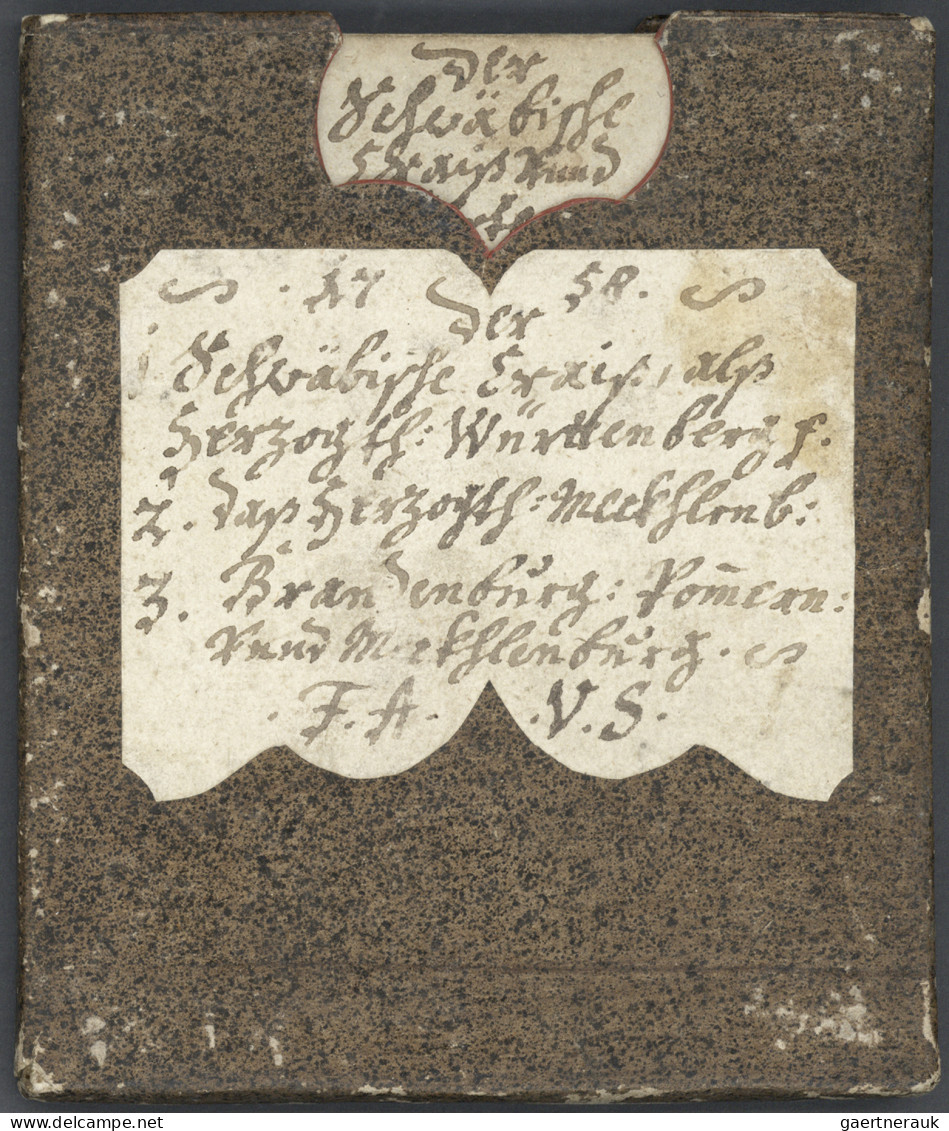 Der
Schwäbische
Craiß Vnnd
17 58.
Der
Schwäbische Craiß, alß
Herzogth: Württenberg
2. daß Herzogth: Meckhlenb:
3. Brandenburg: Pom̄ern:
Vnnd Meckhlenburg.
F. A. V. S.
delcampe.net
gaertnerauk